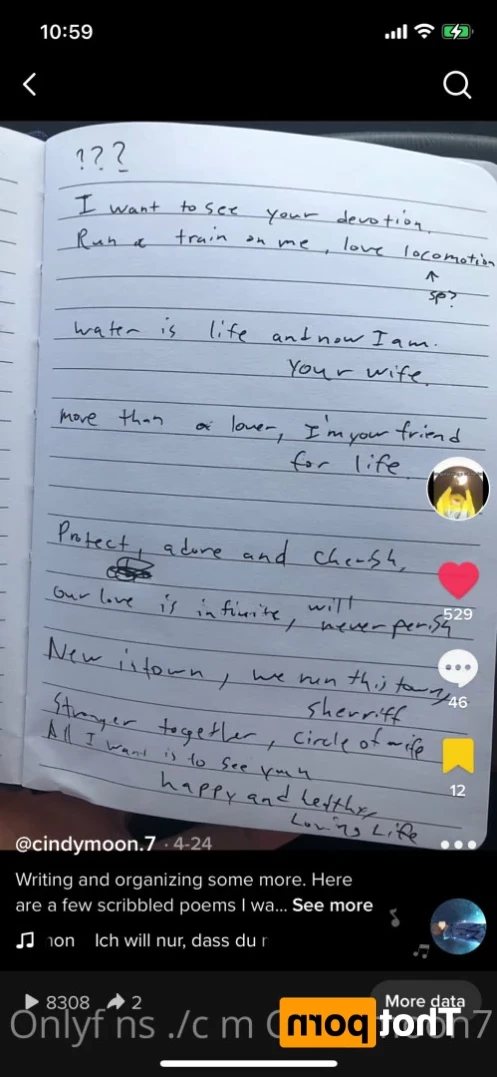 10:59
???
I want to see your devotion.
Run a train on me, love locomotion
↑
sp?
Water is life and now I am.
Your wife.
More than a lover, I'm your friend
for life.
Protect, adore and cherish,
Our love is infinite, will never perish
New in town, we run this town,
Sherriff
Stronger together, circle of wife
All I want is to see
happy and
Loving Life
529
46
12
@cindymoon.7 · 4-24
Writing and organizing some more. Here
are a few scribbled poems I wa... See more
Ich will nur, dass du
8308
2
More data
Onlyf ns ./c m
moon7
Thot porn